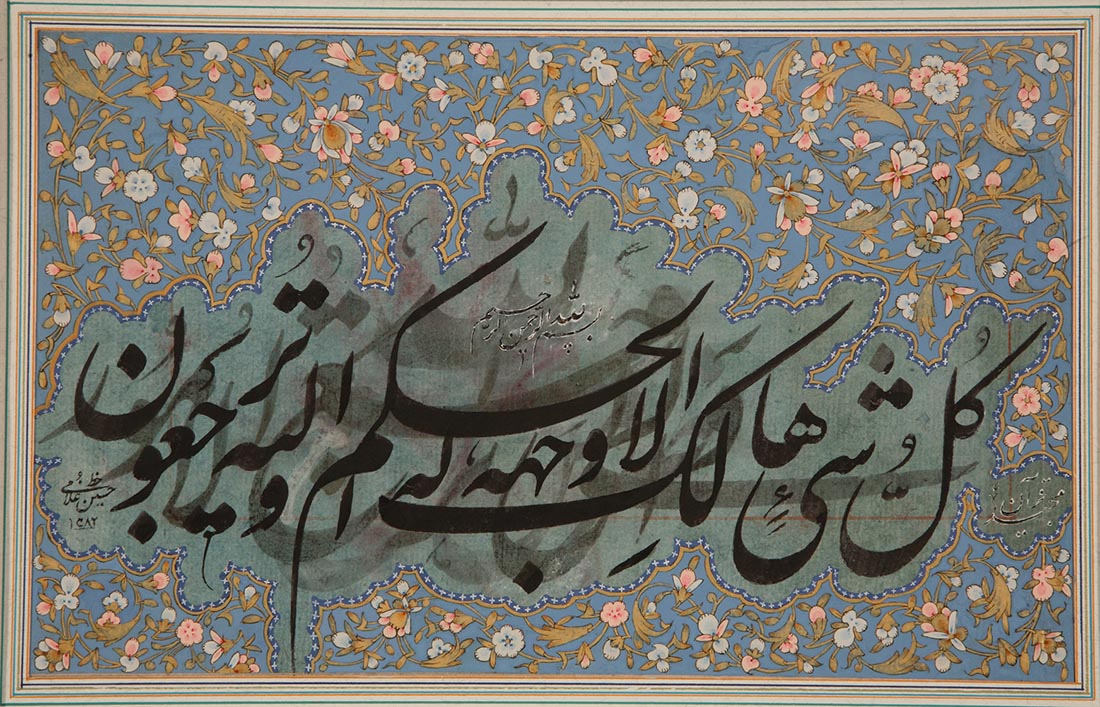 بسم الله الرحمن الرحیم
كُلُّ شیءٍ هالكِ الا وجهه له الحكم و الیه تُرجعُون
قرآن مجید
خط
حسین غلامی
۱۳۸۲